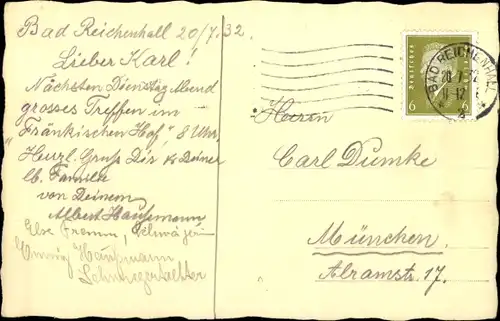 Bad Reichenhall 20/7.32.
Lieber Karl!
Nächsten Dienstag Abend
grosses Treffen im
"Fränkischen Hof" 8 Uhr.
Herzl. Gruss Dir & Deiner
lb. Familie
von Deinem
Albert Haussmann,
Else Fromm, Schwägerin
Haussmann
Deutsches Reich
6 6
BAD REICHENHALL
20.7.32
11-12
Herren
Carl Dumke
München
Alramstr. 17.